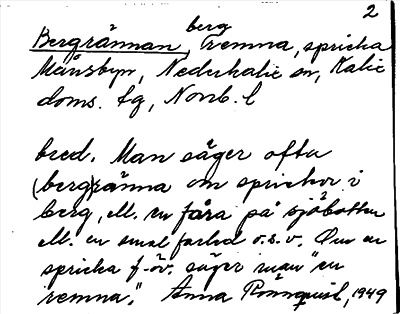 2
berg
Bergrännan, remna, spricka
Månsbyn, Nederkalix sn, Kalix
doms. tg, Norrb. l
bred. Man säger ofta
(berg)ränna om sprickor i
berg, ell. en fåra på sjöbotten
ell. en smal farled o.s.v. Om en
spricka f. öv. säger man "en
remna." Anna Rönnquist, 1949